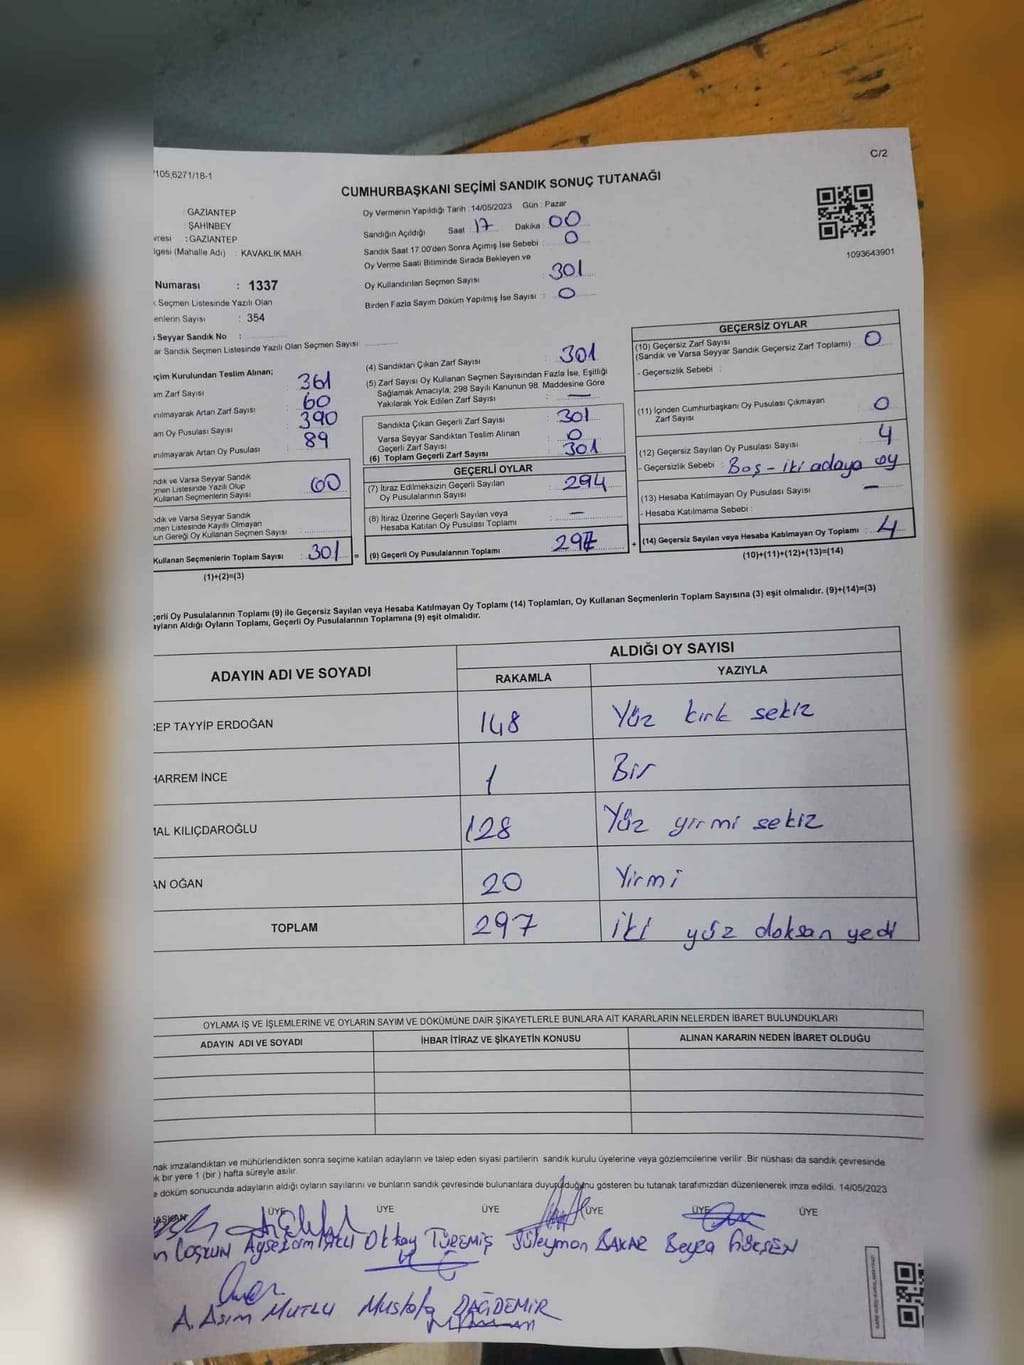 C/2
105,6271/18-1
CUMHURBAŞKANI SEÇİMİ SANDIK SONUÇ TUTANAĞI
GAZİANTEP
ŞAHİNBEY
:GAZİANTEP
(Mahalle Adı) : KAVAKLIK MAH
Oy Vermenin Yapıldığı Tarih :14/05/2023 Gün : Pazar
Sandığın Açıldığı Saat 17 Dakika 00
Sandık Saat 17.00'den Sonra Açımış İse Sebebi : 0
Oy Verme Saati Bitiminde Sırada Bekleyen ve
Oy Kullandırılan Seçmen Sayısı 301
Birden Fazla Sayım Döküm Yapılmış İse Sayısı : 0
1093643901
Numarası : 1337
Seçmen Listesinde Yazılı Olan
enlerin Sayısı : 354
Seyyar Sandık No :
ar Sandık Seçmen Listesinde Yazılı Olan Seçmen Sayısı
çim Kurulundan Teslim Alınan;
am Zarf Sayısı 361
anılmayarak Artan Zarf Sayısı : 60
am Oy Pusulası Sayısı 390
anılmayarak Artan Oy Pusulası : 89
ndık ve Varsa Seyyar Sandık
men Listesinde Yazılı Olup
Kullanan Seçmenlerin Sayısı 60
ndık ve Varsa Seyyar Sandık
men Listesinde Kayıtlı Olmayan
un Gereği Oy Kullanan Seçmen Sayısı :
Kullanan Seçmenlerin Toplam Sayısı : 301
(1)+(2)=(3)
(4) Sandıktan Çıkan Zarf Sayısı : 301
(5) Zarf Sayısı Oy Kullanan Seçmen Sayısından Fazla İse, Eşitliği
Sağlamak Amacıyla; 298 Sayılı Kanunun 98. Maddesine Göre
Yakılarak Yok Edilen Zarf Sayısı : —
Sandıkta Çıkan Geçerli Zarf Sayısı : 301
Varsa Seyyar Sandıktan Teslim Alınan
Geçerli Zarf Sayısı : 0
(6) Toplam Geçerli Zarf Sayısı : 301
GEÇERLİ OYLAR
(7) İtiraz Edilmeksizin Geçerli Sayılan
Oy Pusulalarının Sayısı : 294
(8) İtiraz Üzerine Geçerli Sayılan veya
Hesaba Katılan Oy Pusulası Toplamı : —
= (9) Geçerli Oy Pusulalarının Toplamı : 297
GEÇERSİZ OYLAR
(10) Geçersiz Zarf Sayısı
(Sandık ve Varsa Seyyar Sandık Geçersiz Zarf Toplamı) : 0
- Geçersizlik Sebebi :
(11) İçinden Cumhurbaşkanı Oy Pusulası Çıkmayan
Zarf Sayısı : 0
(12) Geçersiz Sayılan Oy Pusulası Sayısı : 4
- Geçersizlik Sebebi : Boş - iki adaya oy
(13) Hesaba Katılmayan Oy Pusulası Sayısı : —
- Hesaba Katılmama Sebebi :
+ (14) Geçersiz Sayılan veya Hesaba Katılmayan Oy Toplamı : 4
(10)+(11)+(12)+(13)=(14)
çerli Oy Pusulalarının Toplamı (9) ile Geçersiz Sayılan veya Hesaba Katılmayan Oy Toplamı (14) Toplamları, Oy Kullanan Seçmenlerin Toplam Sayısına (3) eşit olmalıdır. (9)+(14)=(3)
ayların Aldığı Oyların Toplamı, Geçerli Oy Pusulalarının Toplamına (9) eşit olmalıdır.
ADAYIN ADI VE SOYADI ALDIĞI OY SAYISI
RAKAMLA YAZIYLA
EP TAYYİP ERDOĞAN 148 Yüz kırk sekiz
HARREM İNCE 1 Bir
MAL KILIÇDAROĞLU 128 Yüz yirmi sekiz
AN OĞAN 20 Yirmi
TOPLAM 297 iki yüz doksan yedi
OYLAMA İŞ VE İŞLEMLERİNE VE OYLARIN SAYIM VE DÖKÜMÜNE DAİR ŞİKAYETLERLE BUNLARA AİT KARARLARIN NELERDEN İBARET BULUNDUKLARI
ADAYIN ADI VE SOYADI İHBAR İTİRAZ VE ŞİKAYETİN KONUSU ALINAN KARARIN NEDEN İBARET OLDUĞU
nak imzalandıktan ve mühürlendikten sonra seçime katılan adayların ve talep eden siyasi partilerin sandık kurulu üyelerine veya gözlemcilerine verilir. Bir nüshası da sandık çevresinde
k bir yere 1 (bir) hafta süreyle asılır.
döküm sonucunda adayların aldığı oyların sayılarını ve bunların sandık çevresinde bulunanlara duyurulduğunu gösteren bu tutanak tarafımızdan düzenlenerek imza edildi. 14/05/2023
BAŞKAN ÜYE ÜYE ÜYE ÜYE ÜYE ÜYE
n COŞKUN Oktay TÜREMİŞ Süleyman BAKAR Beyza GÖKŞEN
A. Asım MUTLU Mustafa DAĞIDEMİR